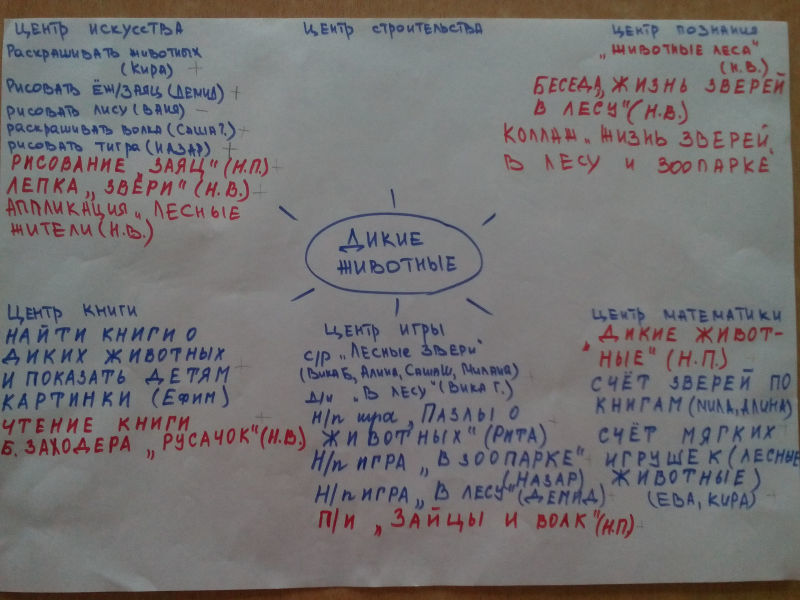 Центр искусства
Раскрашивать животных
(Кира) +
Рисовать ёж/заяц (Демид) +
рисовать лису (Ваня) –
раскрашивать волка (Саша Г.) +
рисовать тигра (Назар) +
Рисование „Заяц" (Н.П.) +
Лепка „Звери" (Н.В.) +
Аппликация „Лесные
жители (Н.В.)
Центр строительства
Центр познания
„Животные леса"
(Н.В.)
Беседа „Жизнь зверей
в лесу" (Н.В.)
Коллаж „Жизнь зверей
в лесу и зоопарке
Дикие
животные
Центр книги
Найти книги о
диких животных
и показать детям
картинки (Ефим)
Чтение книги +
Б. Заходера „Русачок" (Н.В.)
Центр игры
с/р „Лесные звери"
(Вика Б, Алина, Саша Ш, Милана)
д/и „В лесу" (Вика Г.)
Н/п игра „Пазлы о
животных" (Рита)
Н/п игра „В зоопарке" +
(Назар)
Н/п игра „В лесу" (Демид) +
П/и „Зайцы и волк" (Н.П.) +
Центр математики
„Дикие живот-
ные" (Н.П.) +
Счёт зверей по
книгам (Мила, Алина)
Счёт мягких +
игрушек (лесные
животные)
(Ева, Кира) +